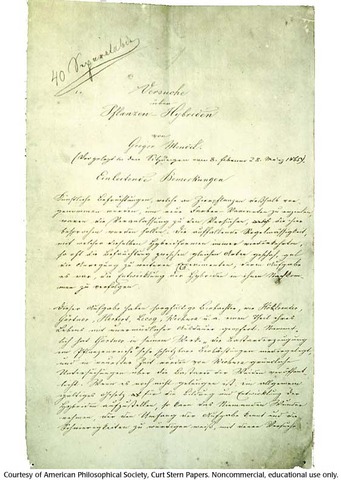 40 Separatabdr
Versuche
über
Pflanzen-Hybriden
von
Gregor Mendel.
(Vorgelegt in den Sitzungen vom 8. Februar 8. März 1865).
Einleitende Bemerkungen
Künstliche Befruchtungen, welche an Zierpflanzen deshalb vor-
genommen wurden, um neue Farben-Varianten zu erzielen,
waren die Veranlassung zu den Versuchen, die hier
besprochen werden sollen. Die auffallende Regelmässigkeit,
mit welcher dieselben Hybridformen immer wiederkehrten,
so oft die Befruchtung zwischen gleichen Arten geschah, gab
die Anregung zu weiteren Experimenten, deren Aufgabe
es war, die Entwicklung der Hybriden in ihren Nachkom-
men zu verfolgen.
Dieser Aufgabe haben sorgfältige Beobachter, wie Kölreuter,
Gärtner, Herbert, Lecoq, Wichura u. a. einen Theil ihres
Lebens mit unermüdlicher Ausdauer geopfert. Nament-
lich hat Gärtner in seinem Werke „die Bastarderzeugung
im Pflanzenreiche“ sehr schätzbare Beobachtungen niedergelegt,
und in neuester Zeit wurden von Wichura gründliche
Untersuchungen über die Bastarde der Weiden veröffent-
licht. Wenn es noch nicht gelungen ist, ein allgemein
giltiges Gesetz für die Bildung und Entwicklung der
Hybriden aufzustellen, so kann das Niemanden Wunder
nehmen, der den Umfang der Aufgabe kennt und die
Schwierigkeiten zu würdigen weiß, mit denen Versuche
Courtesy of American Philosophical Society, Curt Stern Papers. Noncommercial, educational use only.